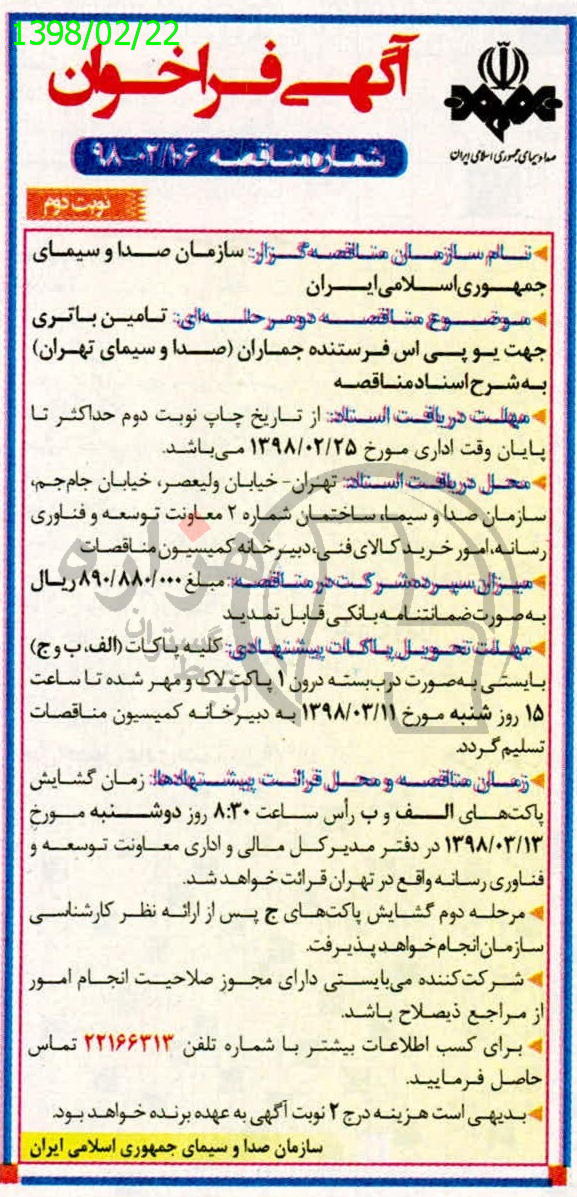 1398/02/22
صدا و سیمای جمهوری اسلامی ایران
آگهی فراخوان
شماره مناقصه ۹۸-۰۲/۱۰۶
نوبت دوم
نام سازمان مناقصه‌گزار: سازمان صدا و سیمای
جمهوری اسلامی ایران
موضوع مناقصه دومرحله‌ای: تامین باتری
جهت یو پی اس فرستنده جماران (صدا و سیمای تهران)
به شرح اسناد مناقصه
مهلت دریافت اسناد: از تاریخ چاپ نوبت دوم حداکثر تا
پایان وقت اداری مورخ ۱۳۹۸/۰۲/۲۵ می‌باشد.
محل دریافت اسناد: تهران- خیابان ولیعصر، خیابان جام‌جم،
سازمان صدا و سیما، ساختمان شماره ۲ معاونت توسعه و فناوری
رسانه، امور خرید کالای فنی، دبیرخانه کمیسیون مناقصات
میزان سپرده شرکت در مناقصه: مبلغ ۸۹۰/۸۸۰/۰۰۰ ریال
به صورت ضمانتنامه بانکی قابل تمدید
مهلت تحویل پاکات پیشنهادی: کلیه پاکات (الف، ب و ج)
بایستی به صورت درب‌بسته درون ۱ پاکت لاک و مهر شده تا ساعت
۱۵ روز شنبه مورخ ۱۳۹۸/۰۳/۱۱ به دبیرخانه کمیسیون مناقصات
تسلیم گردد.
زمان مناقصه و محل قرائت پیشنهادها: زمان گشایش
پاکت‌های الف و ب رأس ساعت ۸:۳۰ روز دوشنبه مورخ
۱۳۹۸/۰۳/۱۳ در دفتر مدیرکل مالی و اداری معاونت توسعه و
فناوری رسانه واقع در تهران قرائت خواهد شد.
مرحله دوم گشایش پاکت‌های ج پس از ارائه نظر کارشناسی
سازمان انجام خواهد پذیرفت.
شرکت‌کننده می‌بایستی دارای مجوز صلاحیت انجام امور
از مراجع ذیصلاح باشد.
برای کسب اطلاعات بیشتر با شماره تلفن ۲۲۱۶۶۳۱۳ تماس
حاصل فرمایید.
بدیهی است هزینه درج ۲ نوبت آگهی به عهده برنده خواهد بود.
سازمان صدا و سیمای جمهوری اسلامی ایران